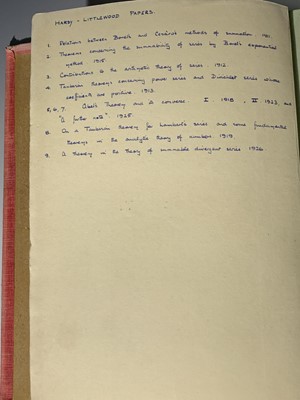 HARDY - LITTLEWOOD PAPERS.
1. Relations between Borel's and Cesàro's methods of summation. 1911.
2. Theorems concerning the summability of series by Borel's exponential
method. 1915.
3. Contributions to the arithmetic theory of series. 1912.
4. Tauberian theorems concerning power series and Dirichlet series whose
coefficients are positive. 1913.
5, 6, 7. Abel's Theorem and its converse I. 1918. II 1923. and
"A further note". 1925.
8. On a Tauberian theorem for Lambert's series and some fundamental
theorems in the analytic theory of numbers. 1919.
9. A theorem in the theory of summable divergent series 1926.